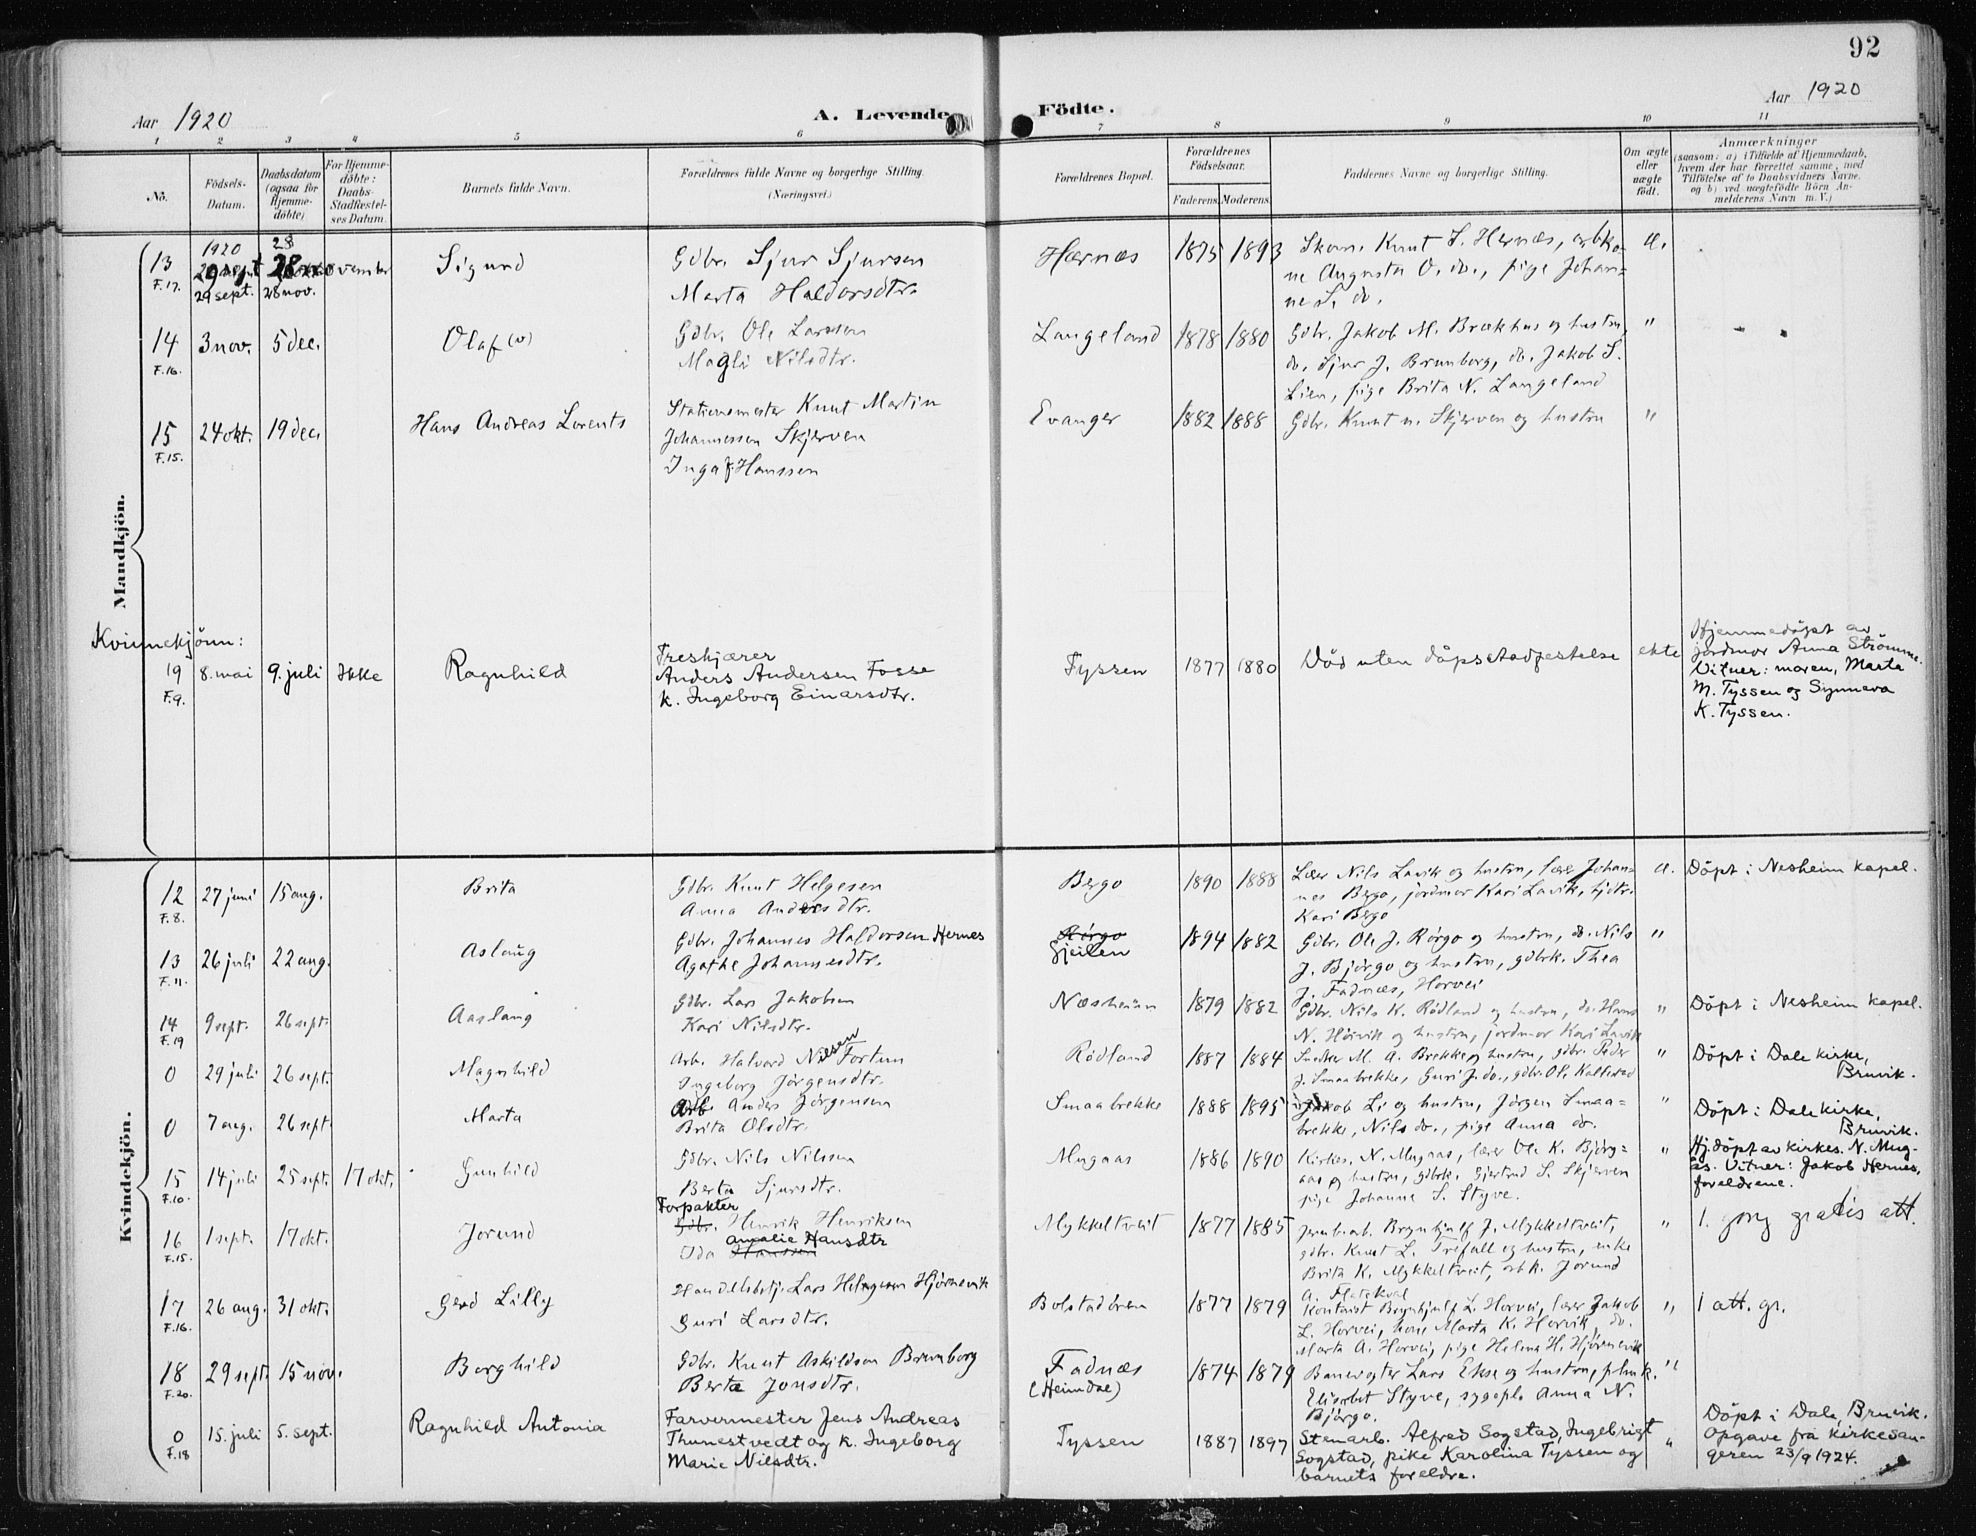 92
Aar 1920
A. Levende Födte.
Aar 1920
1 2 3 4 5 6 7 8 9 10 11
No.
Födsels-Datum.
Daabsdatum (ogsaa for Hjemme-döbte)
For Hjemme-döbte: Daabs-Stadfæstel-ses Datum.
Barnets fulde Navn.
Forældrenes fulde Navne og borgerlige Stilling.
(Næringsvei.)
Forældrenes Bopæl.
Forældrenes Födselsaar.
Faderens Moderens
Faddernes Navne og borgerlige Stilling.
Om ægte eller uægte födt.
Anmærkninger
(saasom: a) i Tilfælde af Hjemmedaab, hvem der har forrettet samme, med Tilföielse af to Daabsvidners Navne. og b) ved uægtefödte Börn An-melderens Navn m. V.)
Mandkjön.
13 F.17. 1920 29 sept. 28 nov. Sigurd
Gdbr. Sjur Sjursen
Marta Haldorsdtr.
Hærnæs 1875 1893
Knut S. Hernæs, arbko-
ne Augusta O. do., pige Johan-
ne S. do.
æ.
14 F.16. 3 nov. 5 dec. Olaf (v)
Gdbr. Ole Larssen
Magli Nilsdtr.
Langeland 1878 1880
Gdbr. Jakob M. Brækhus og hustru,
do. Sjur J. Brunborg, do. Jakob S.
Lien, pige Brita N. Langeland
"
15 F.15. 24 okt. 19 dec. Hans Andreas Lorents
Stationsmester Knut Martin
Johannessen Skjerven
Inga J. Hanssen
Evanger 1882 1888
Gdbr. Knut N. Skjerven og hustru
"
Kvinnekjönn:
19 F.9. 8. mai 9. juli Ikke Ragnhild
Treskjærer
Anders Andersen Fosse
k. Ingeborg Einarsdtr.
Tyssen 1877 1880
Död uten döpsstadfestelse
ekte
Hjemmedöpt av
jordmor Anna Strömme.
Vitner: moren, Marta
M. Tyssen og Synneva
K. Tyssen.
Kvindekjön.
12 F.8. 27 juni 15 aug. Brita
Gdbr. Knut Helgesen
Anna Andersdtr.
Bergo 1890 1888
Lærer Nils Lavik og hustru, lærer Johan-
nes Bergo, jordmor Kari Lavik,
Kari Bergo
æ.
Döpt i Nesheim kapel.
13 F.11. 26 juli 22 aug. Aslaug
Gdbr. Johannes Haldorsen Hernes
Agathe Johannesdtr.
Rörgo
Gjeilen 1894 1882
Gdbr. Ole J. Rörgo og hustru, do. Nils
J. Björgo og hustru, gdbrk. Thea
J. Fadnæs, Horvei
"
14 F.19 9 sept. 26 sept. Aaslaug
Gdbr. Lars Jakobsen
Kari Nilsdtr.
Næsheim 1879 1882
Gdbr. Nils K. Rödland og hustru, do. Hans
N. Horvik og hustru, jordmor Kari Lavik
"
Döpt i Nesheim kapel.
0 29 juli 26 sept. Magnhild
Arb. Halvard Nilsen Fortun
Ingeborg Jörgensdtr.
Rödland 1887 1884
Snedker M. A. Brekke og hustru, gdbr. Peder
J. Smaabrekke, Guri J. do., gdbr. Ole Kallestad
"
Döpt i Dale kirke,
Bruvik.
0 7 aug. 26 sept. Marta
Arb. Anders Jörgensen
Brita Olsdtr.
Smaabrekke 1888 1895
Jakob Li og hustru, Jörgen Smaa-
brekke, Nils do., pige Anna do.
"
Döpt i Dale kirke,
Bruvik.
15 F.10. 14 juli 25 sept. 17 okt. Gunhild
Gdbr. Nils Nilssen
Berta Sjursdtr.
Mugaas 1886 1890
Kirkes. N. Mugaas, lærer Ole K. Björg-
aas og hustru, gdbrk. Gjertrud S. Skjerven
pige Johanne S. Styve.
"
Hj.döpt av kirkes. N. Mug-
ås. Vitner: Jakob Hernes,
foreldrene.
16 F.15. 1 sept. 17 okt. Jorund
Forpakter
Gdbr. Henrik Henriksen
Ida Amalie Hansdtr
Hanssen
Mykkeltveit 1877 1885
Jernb.arb. Brynhjulf J. Mykkeltveit,
gdbr. Knut L. Trefall og hustru, enke
Brita K. Mykkeltveit, arbk. Jorund
A. Flatekval
"
1. gong gratis att.
17 F.16. 26 aug. 31 okt. Gerd Lilly
Handelsbetj. Lars Helgesen Hjörnevik
Guri Larsdtr.
Bolstadören 1877 1879
Kontorist Brynhjulf L. Horvei, lærer Jakob
L. Horvei, kone Marta K. Horvik, do.
Marta A. Horvei, pige Helena H. Hjörnevik
"
1 att. gr.
18 F.20. 29 sept. 15 nov. Borghild
Gdbr. Knut Askildson Brunborg
Berta Jonsdtr.
Fadnæs
(Heimdal) 1874 1879
Banevogter Lars Ekse og hustru,
Elisabet Styve, sygepl. Anna N.
Björgo.
"
0 F.18 15. juli 5. sept. Ragnhild Antonia
Farvermester Jens Andreas
Thunestvedt og k. Ingeborg
Marie Nilsdtr.
Tyssen 1887 1897
Stenarb. Alfred Sogstad, Ingebrigt
Sogstad, pike Karolina Tyssen og
barnets foreldre.
"
Döpt i Dale, Bruvik.
Opgave fra kirkesan-
geren 23/9 1924.